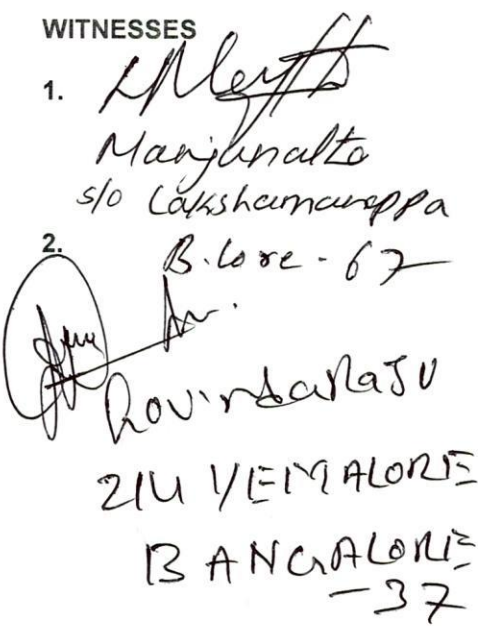 WITNESSES
1.
Manjunatha
s/o Lakshamanappa
2.
B.lore - 67
Govindaraju
214 YEMALORE
BANGALORE
- 37